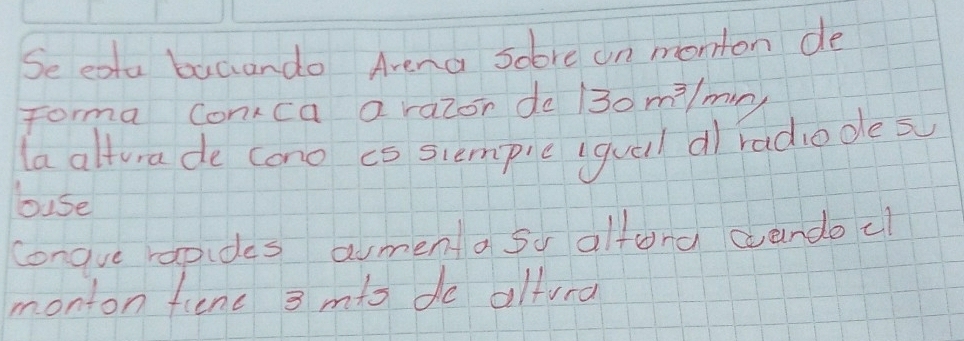 Se esta buciando Arena sobre un monton de
Forma conica a razón de 130 m³/min,
la altura de cono es siempre igual al radio de su
base
Conque rapides aumenta su altura cuando el
monton tiene 3 mts de altura